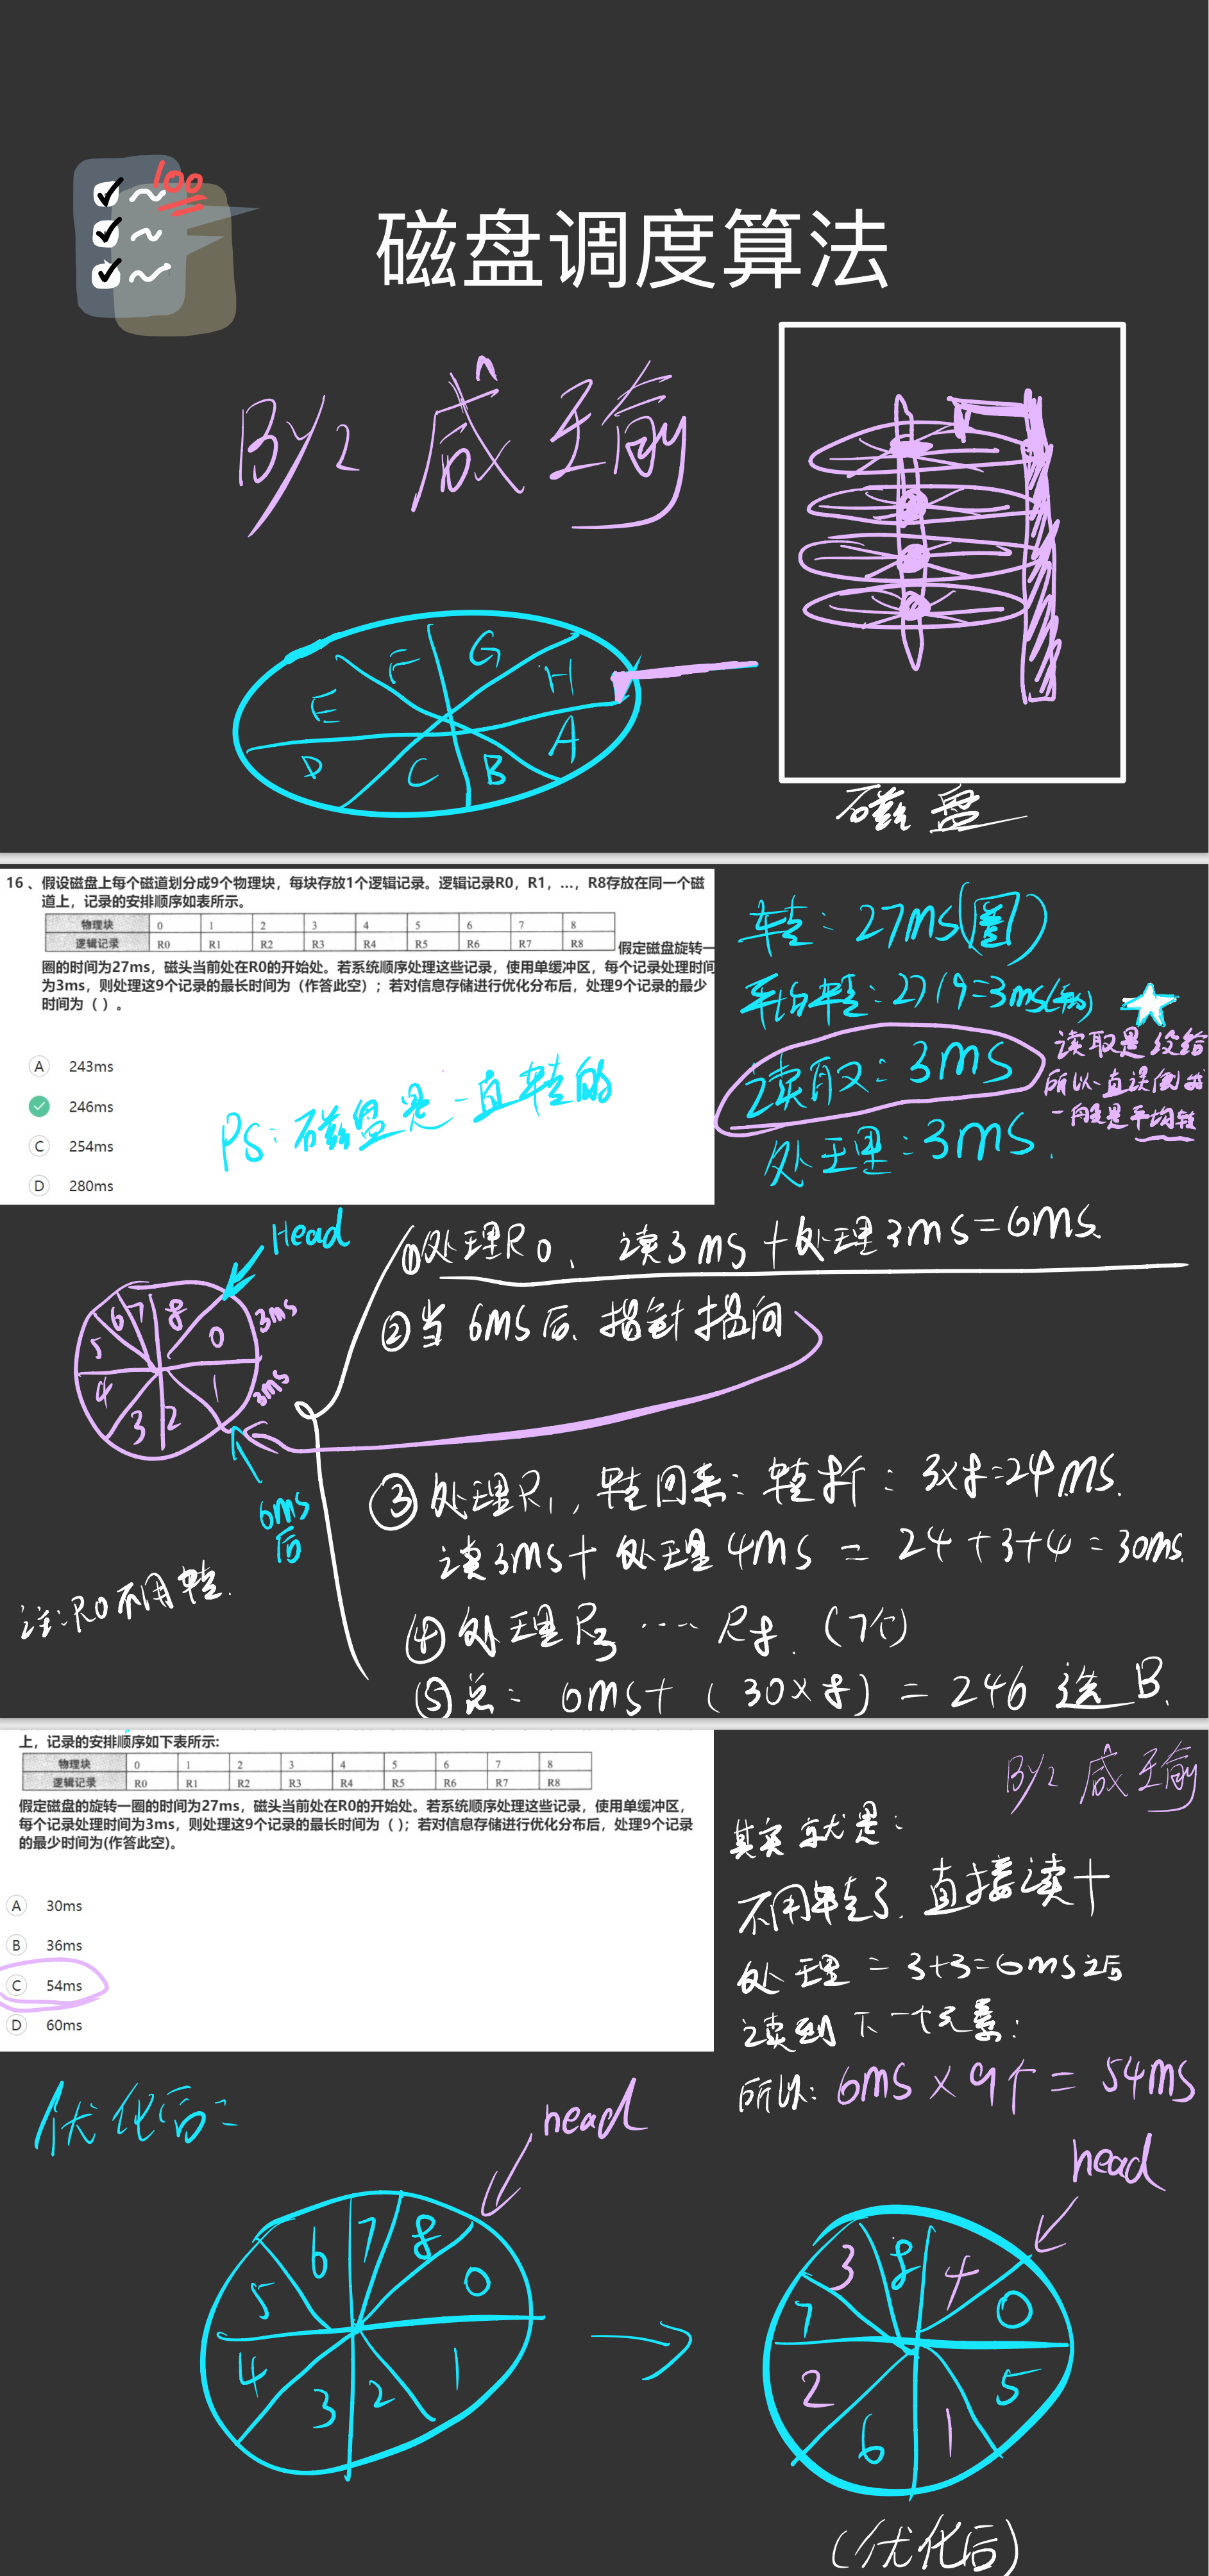 100
磁盘调度算法
By:
E
F
G
H
A
B
C
D
磁盘
16、假设磁盘上每个磁道划分成9个物理块，每块存放1个逻辑记录。逻辑记录R0，R1，...，R8存放在同一个磁
道上，记录的安排顺序如表所示。
物理块 0 1 2 3 4 5 6 7 8
逻辑记录 R0 R1 R2 R3 R4 R5 R6 R7 R8 假定磁盘旋转一
圈的时间为27ms，磁头当前处在R0的开始处。若系统顺序处理这些记录，使用单缓冲区，每个记录处理时间
为3ms，则处理这9个记录的最长时间为（作答此空）；若对信息存储进行优化分布后，处理9个记录的最少
时间为（ ）。
A 243ms
246ms
C 254ms
D 280ms
PS:磁盘是一直转的
转:27ms(圈)
平均转:27/9=3ms
读取:3ms
读取是没给
所以一直误倒我
一般是平均转
处理:3ms.
Head
0
1
2
3
4
5
6
7
8
3ms
3ms
6ms
后
注:R0不用转.
①处理R0、读3ms+处理3ms=6ms.
②当6ms后、指针指向
③处理R1,转回来:转折:3x8=24ms.
读3ms+处理4ms=24+3+4=30ms.
④处理R3…R8.(7个)
⑤总:6ms+(30×8)=246 选B.
上，记录的安排顺序如下表所示:
物理块 0 1 2 3 4 5 6 7 8
逻辑记录 R0 R1 R2 R3 R4 R5 R6 R7 R8
假定磁盘的旋转一圈的时间为27ms，磁头当前处在R0的开始处。若系统顺序处理这些记录，使用单缓冲区，
每个记录处理时间为3ms，则处理这9个记录的最长时间为（ ）；若对信息存储进行优化分布后，处理9个记录
的最少时间为(作答此空)。
A 30ms
B 36ms
C 54ms
D 60ms
By:
其实就是:
不用转了.直接读+
处理=3+3=6ms之后
读到下一个元素:
所以:6ms×9个=54ms
优化后:
head
0
1
2
3
4
5
6
7
8
head
0
5
1
6
2
7
3
8
4
(优化后)